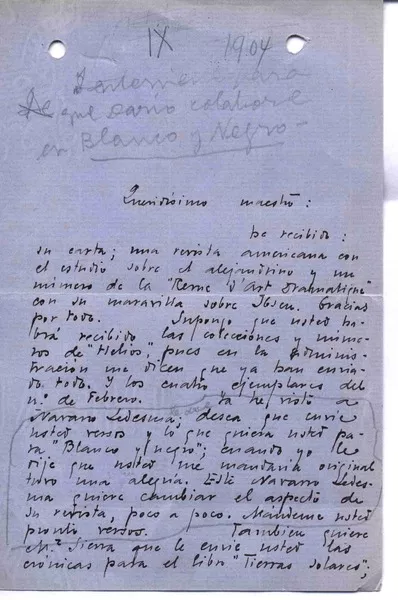 IX 1904
para
que Darío colabore
en Blanco y Negro-
Queridísimo maestro:
He recibido:
su carta; una revista americana con
el estudio sobre el alejandrino y un
número de la "Revue d'Art Dramatique"
con su maravilla sobre Ibsen. Gracias
por todo. Supongo que usted ha-
brá recibido las colecciones y núme-
ros de "Helios", pues en la adminis-
tración me dicen que ya han envia-
do todo. Y los cuatro ejemplares del
n.º de Febrero. Ya he visto a
Navarro Ledesma; desea que envíe
usted versos y lo que quiera usted pa-
ra "Blanco y negro"; cuando yo le
dije que usted me mandaría original
tuvo una alegría. Este Navarro Ledes-
ma quiere cambiar el aspecto de
su revista, poco a poco. Mándeme usted
pronto versos. También quiere
M.z Sierra que le envíe usted las
crónicas para el libro "Tierras solares";